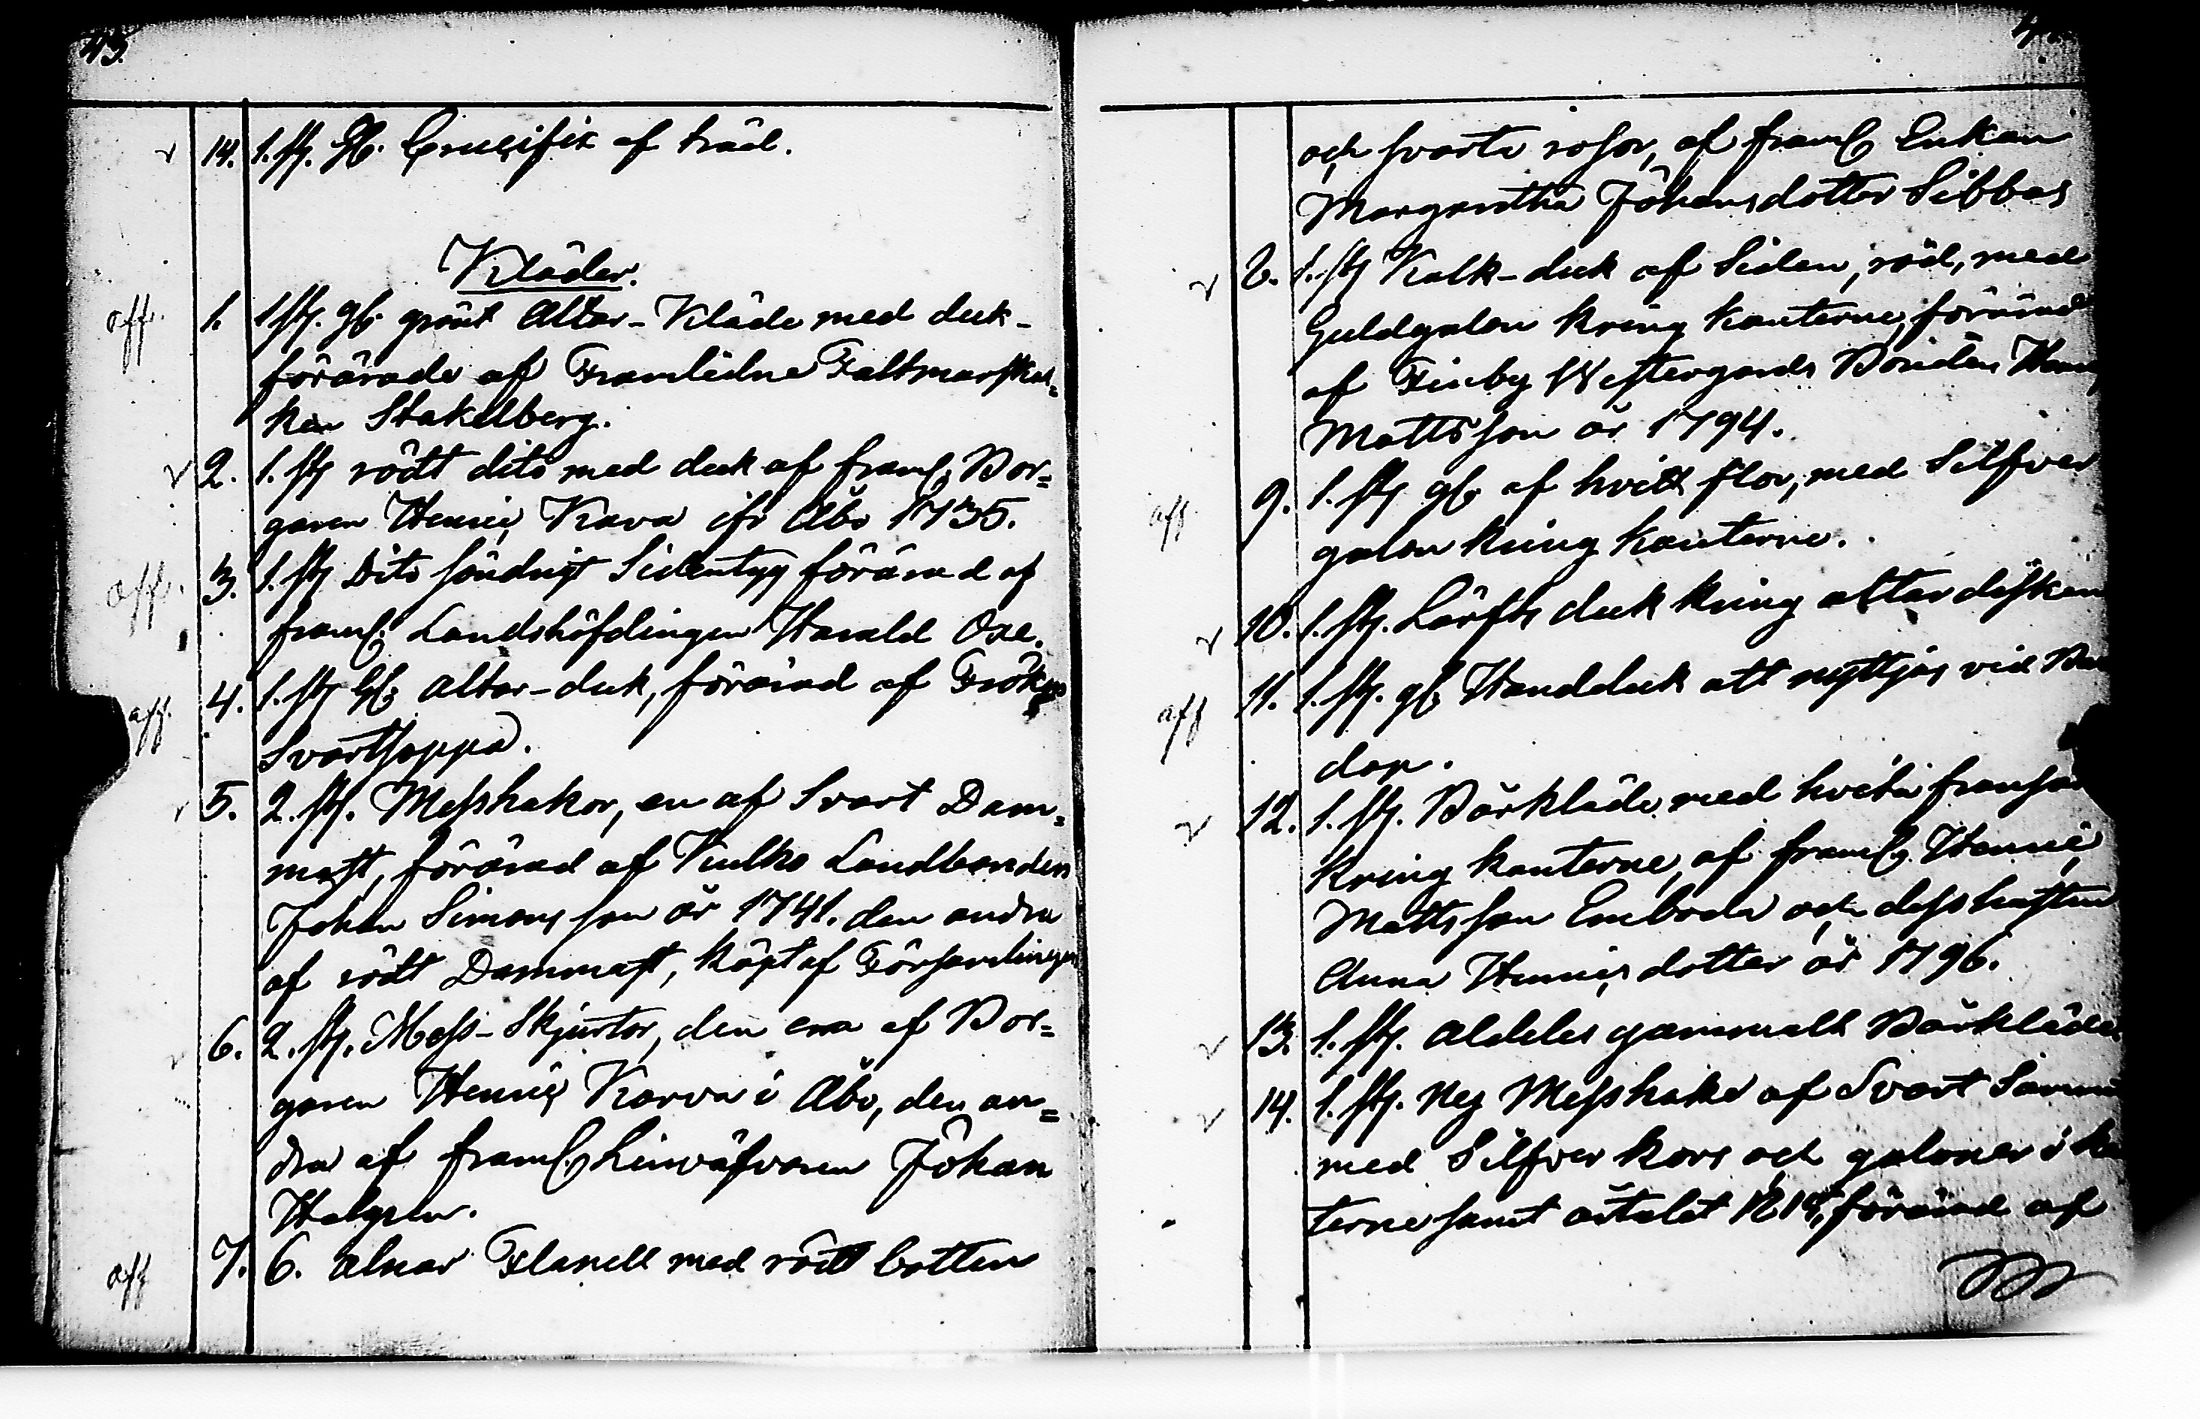 43.
✓ 14. 1. st. Gl. Crucifix af träd.
Kläder.
aff. 1. 1 st. gl. grönt Altar-Kläde med duk-
förärade af Framledne Faltmarskal-
kan Stakelberg.
✓ 2. 1. st rödt dito med duk af framl. Bor=
garen Henric Karva ifr Åbo 1735.
aff. 3. 1. st Dito söndrigt Sidentyg förärad af
framl. Landshöfdingen Harald Oxe.
aff. 4. 1. st Gl. Altar-duk, förärad af Fröken
Svarthoppa.
✓ 5. 2. st. Messhakor, en af Svart Dam=
mast, förärad af Kulko Landbonden
Johan Simonsson år 1741. den andra
af rödt Dammast, köpt af Församlingen
✓ 6. 2. st. Mess-Skjurtor, den ena af Bor=
garen Henric Karva i Åbo, den an=
dra af framl. Linväfvaren Johan
Helgren.
aff 7. 6. alnar Flanell med rödt botten
och svarta rosor, af framl. Enkan
Margaretha Johansdotter Sibbas
✓ 8. 1. st Kalk-duk af Siden, röd, med
Guldgalon kring kanterne, förärad
af Finby Westergårds Bonden
Mattsson år 1794.
aff. 9. 1. st gl. af hvitt flor, med Silfver
galon kring kanterne.
✓ 10. 1. st. Lärfts duk kring altar disken
aff 11. 1. st. gl. Handduk att nyttjas vid
dop.
✓ 12. 1. st. Bårkläde med hvita fransar
kring kanterne, af framl. Henric
Mattsson Emboda och dess hustru
Anna Henricsdotter år 1796.
✓ 13. 1. st. Aldeles gammalt Bårkläde.
✓ 14. 1. st. Ny Messhake af Svart
med Silfver kors och galoner i
terne samt årtalet förärad af